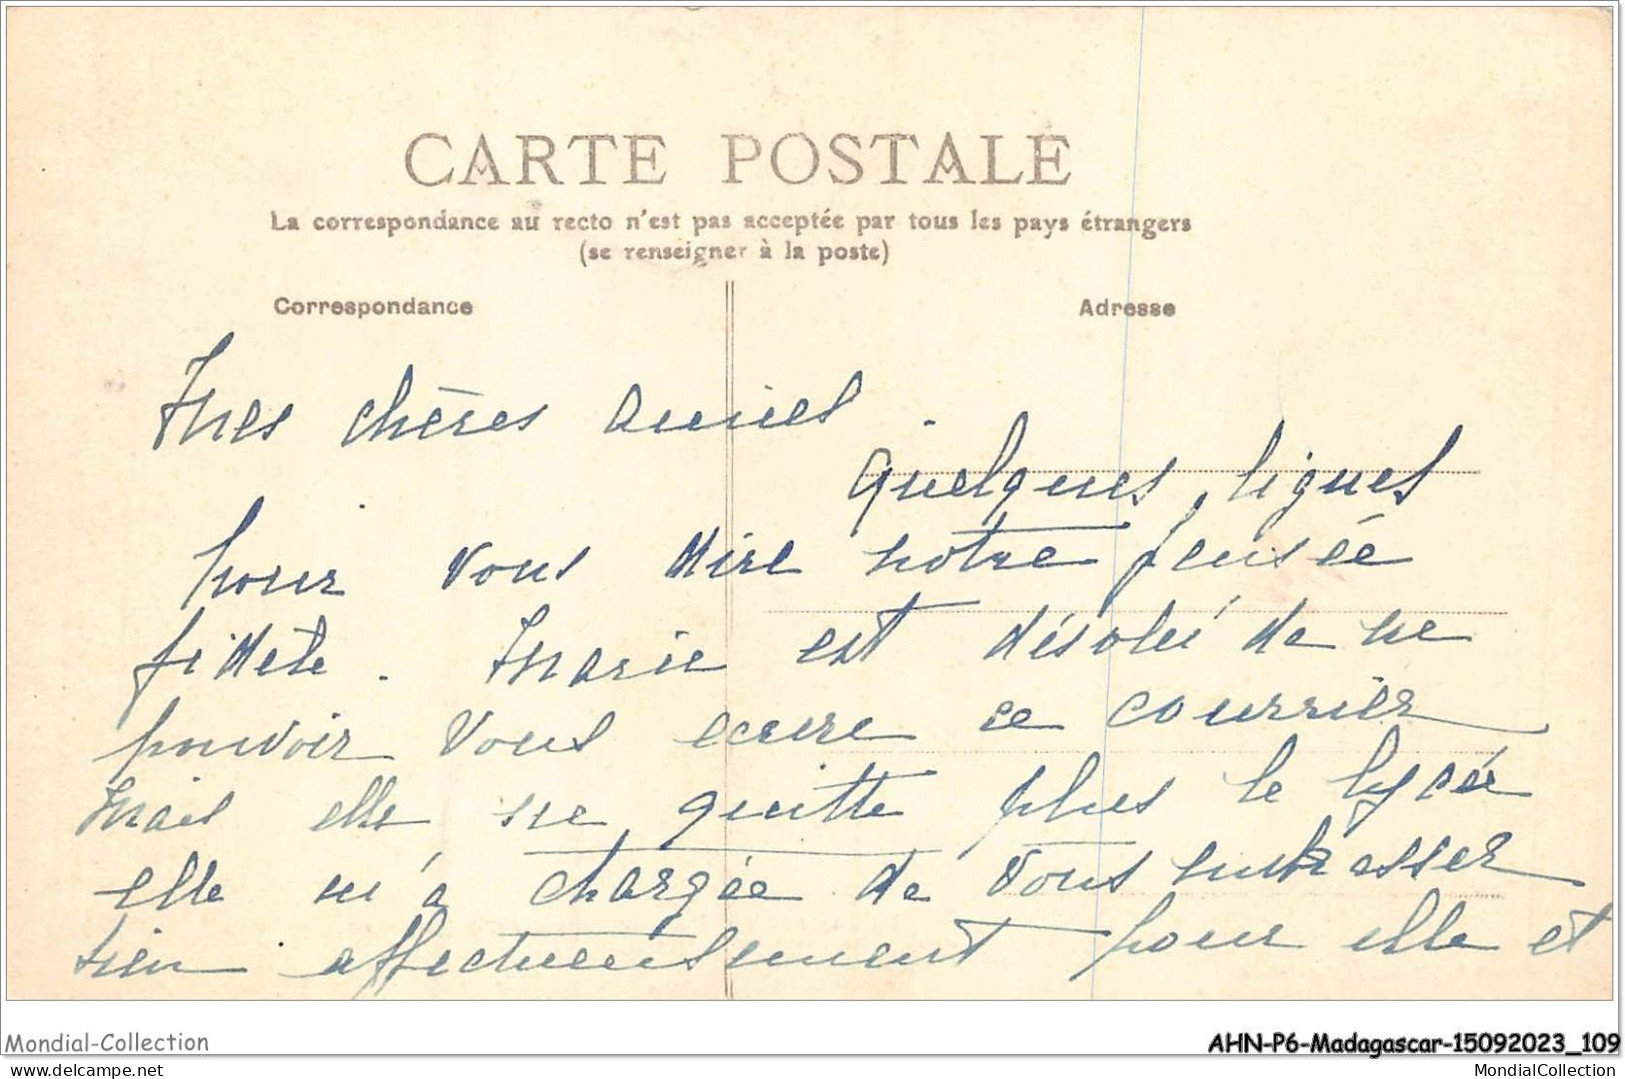 CARTE POSTALE
La correspondance au recto n'est pas acceptée par tous les pays étrangers
(se renseigner à la poste)
Correspondance
Adresse
Mes chères amies.
Quelques lignes
pour vous dire notre pensée
fidèle. Marie est désolée de ne
pouvoir vous ecrire ce courrier
Mais elle ne quitte plus le lycée
elle m'a chargée de vous embrasser
bien affectueusement pour elle et
Mondial-Collection
AHN-P6-Madagascar-15092023_109
delcampe.net
MondialCollection